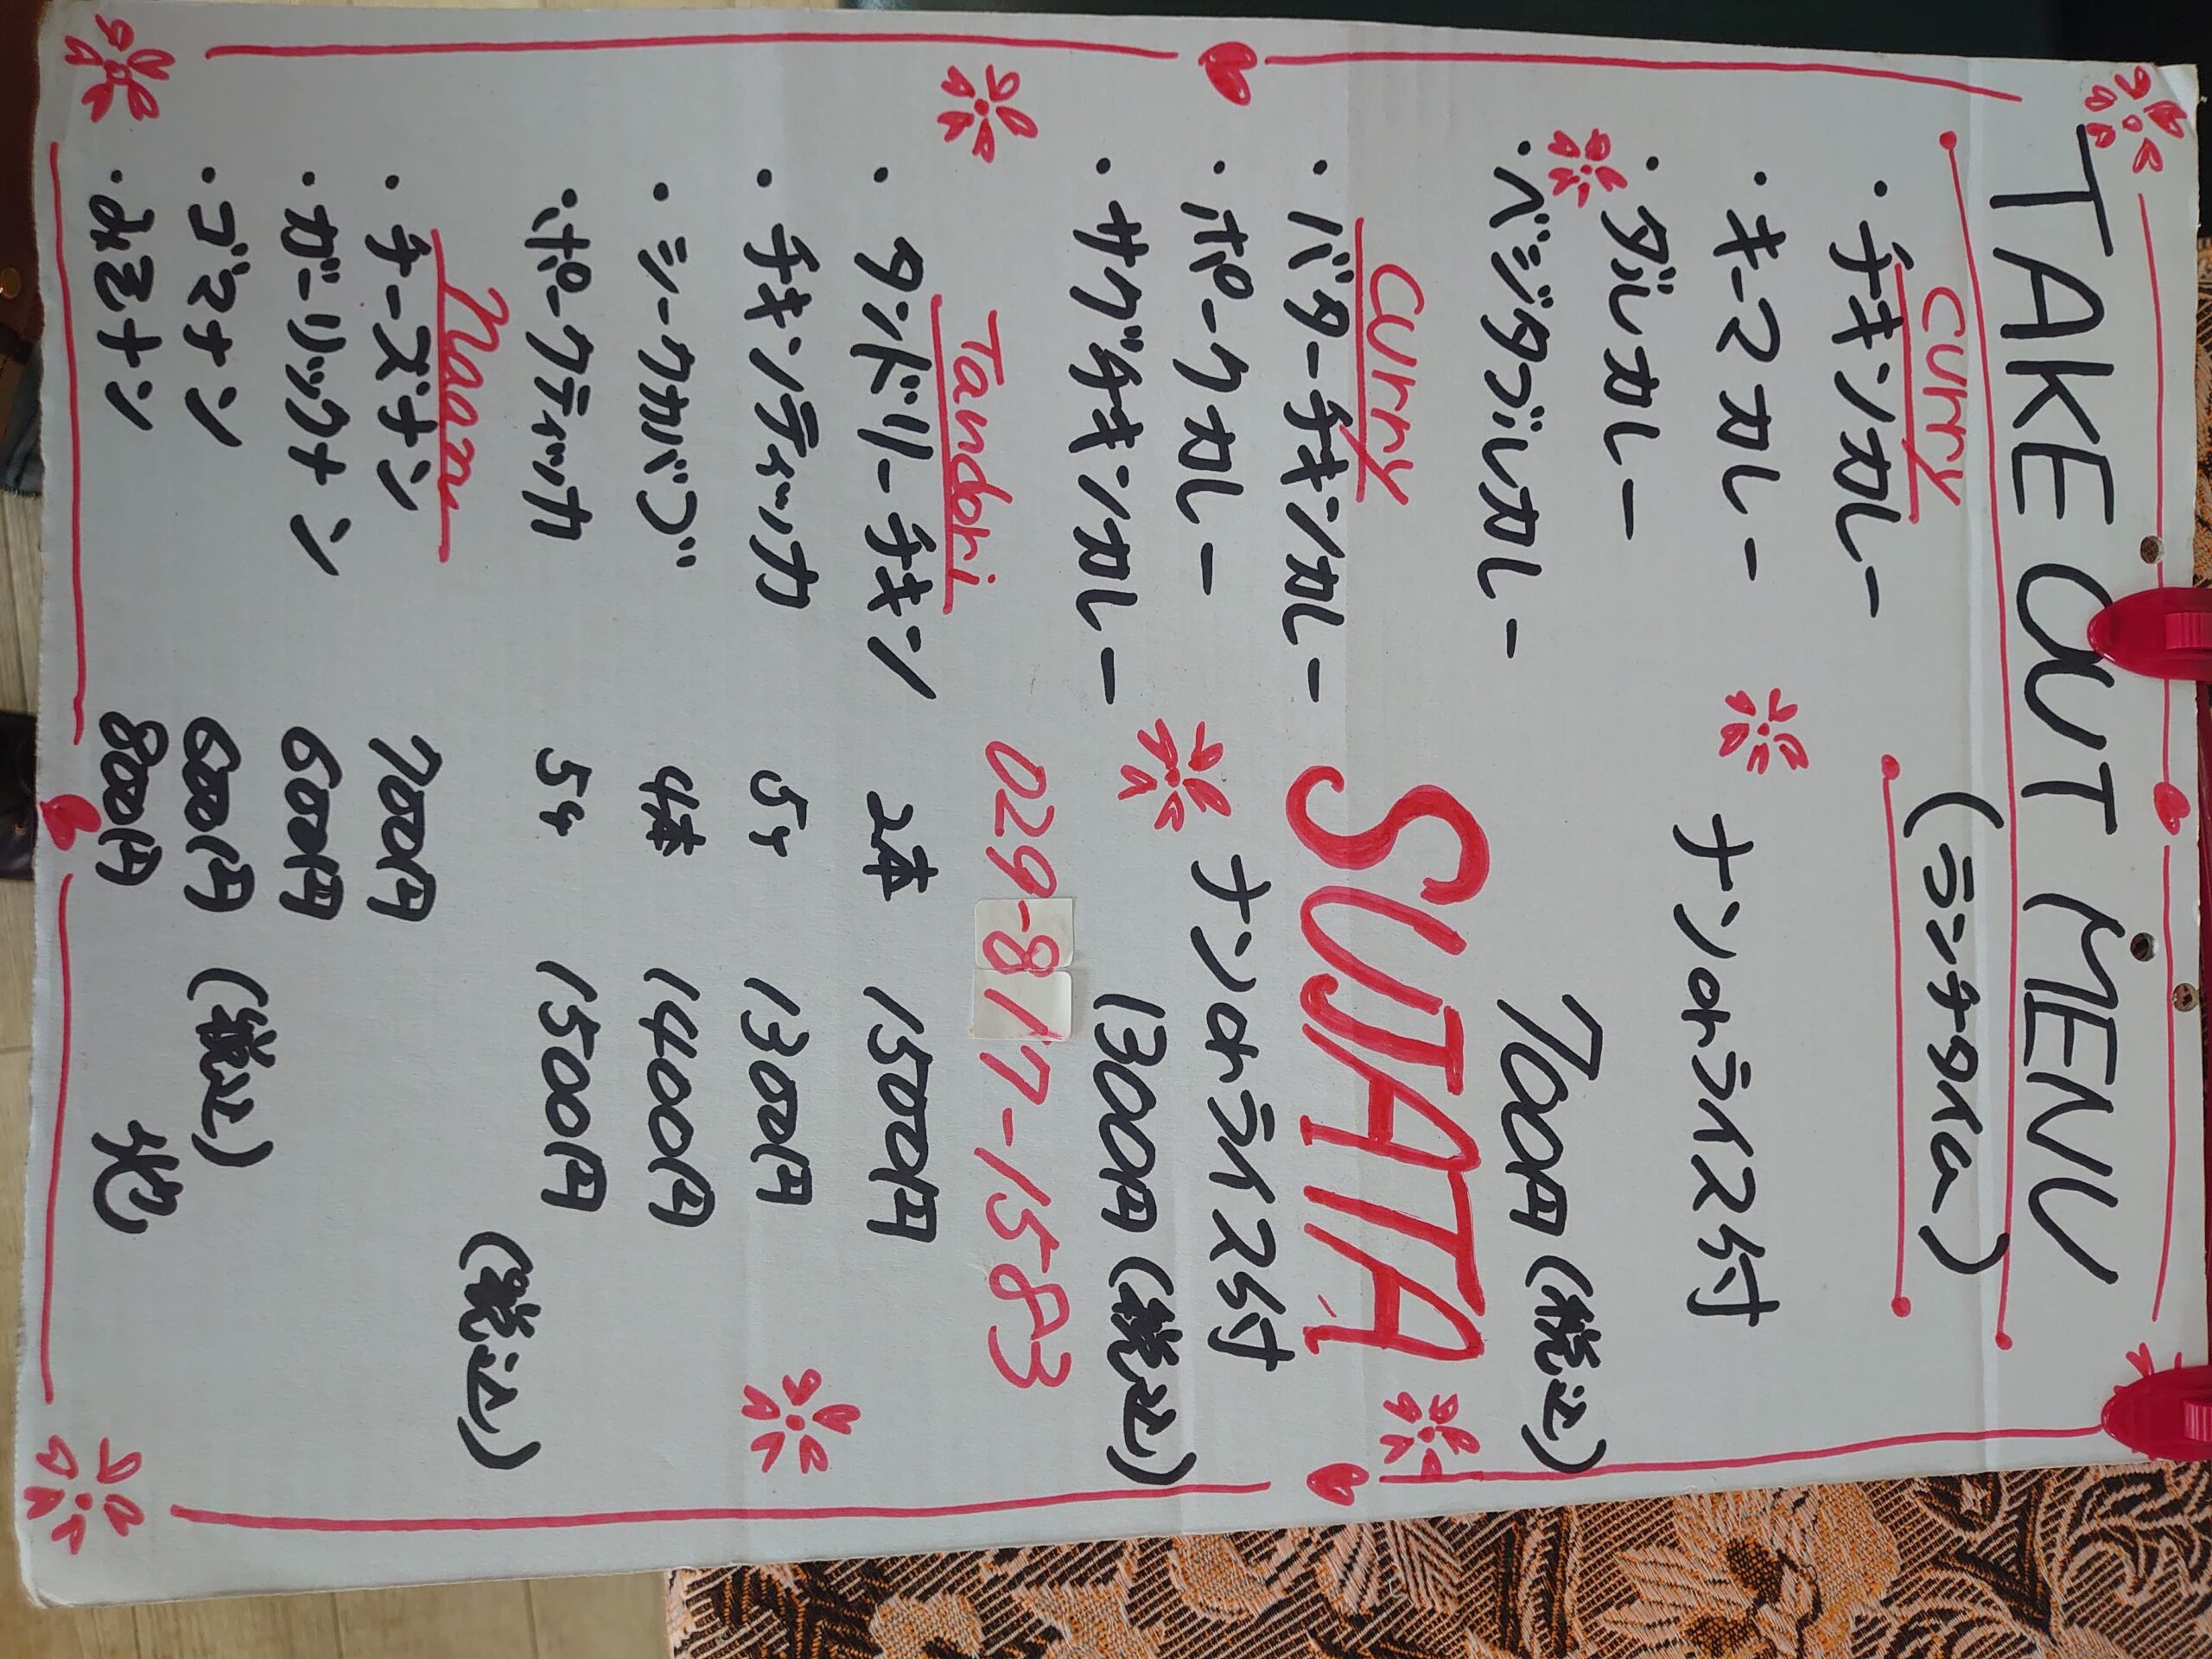 TAKE OUT MENU
(ランチタイム)
Curry
・チキンカレー
・キーマカレー
ナンorライス付
・ダルカレー
・ベジタブルカレー
700円(税込)
SUJATA
Curry
・バターチキンカレー
・ポークカレー
ナンorライス付
・サグチキンカレー
1300円(税込)
029-817-1583
Tandori
・タンドリーチキン 2本 1500円
・チキンティッカ 5ヶ 1300円
・シークカバブ 4本 1400円
・ポークティッカ 5ヶ 1500円
(税込)
Naan
・チーズナン 700円
・ガーリックナン 600円
・ゴマナン 600円 (税込)
・みそナン 800円 他